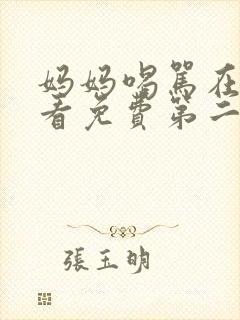 妈妈喝骂在
看免费第二
張玉明